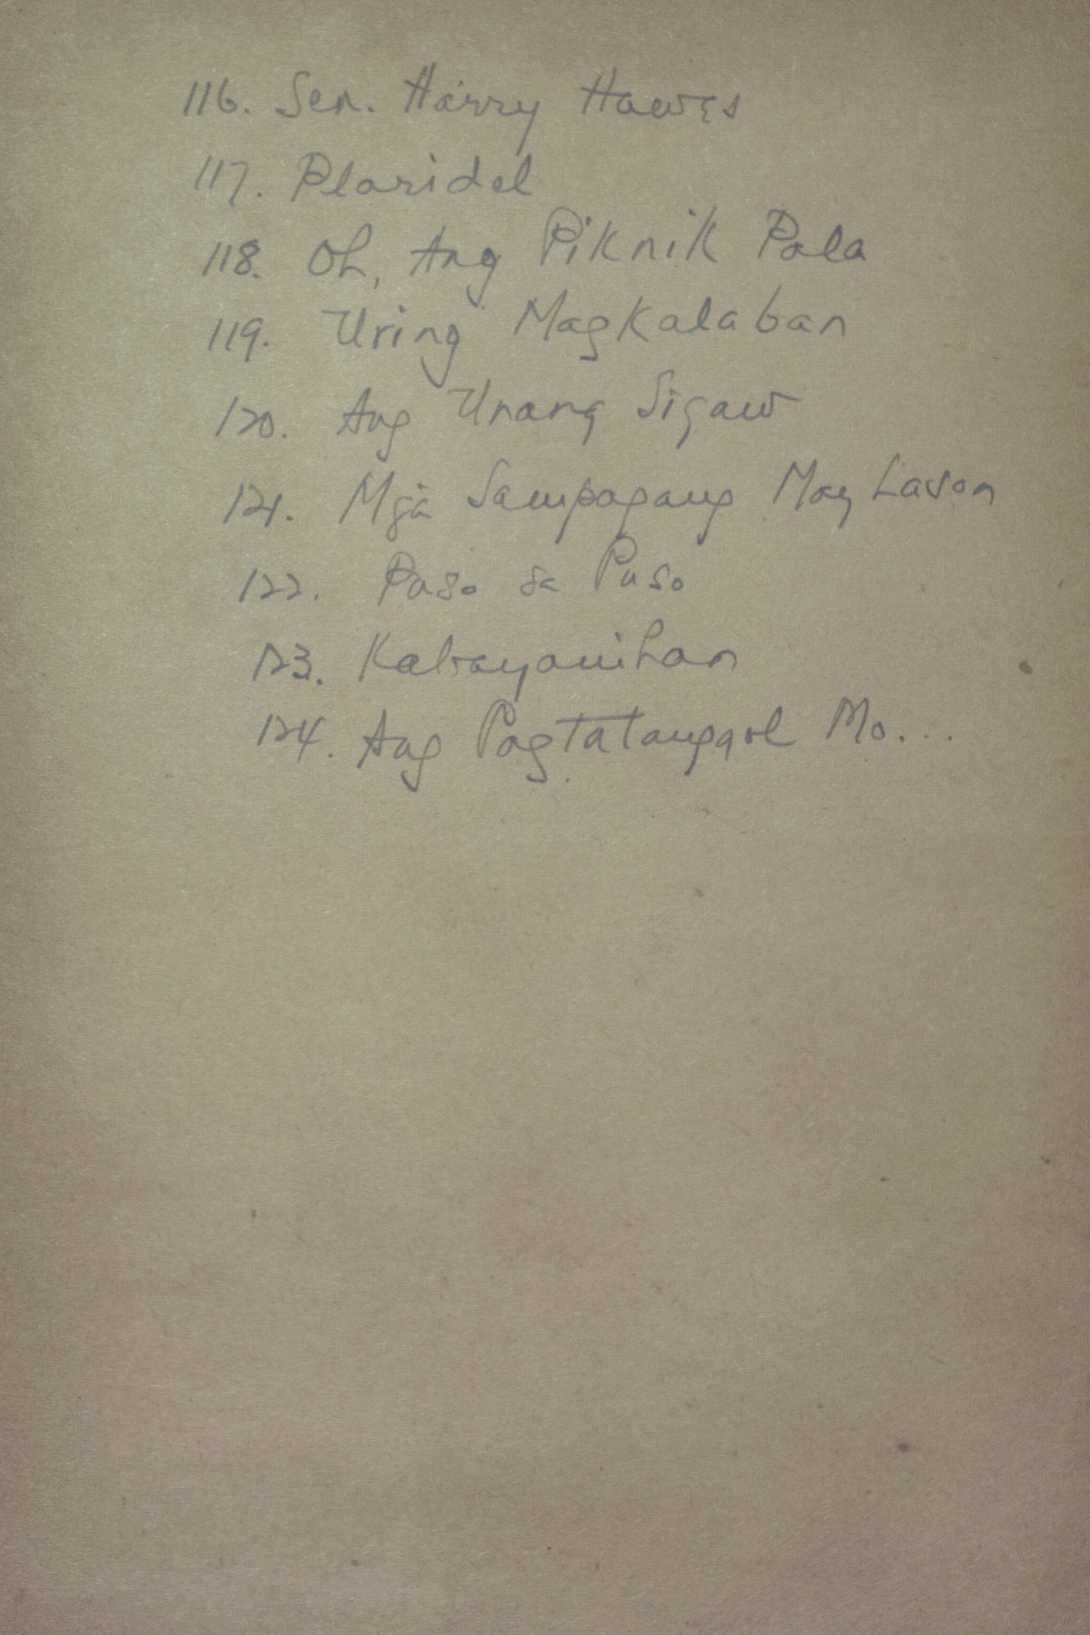 116. Sen. Harry Hawes
117. Plaridel
118. Oh, Ang Piknik Pala
119. Uring Magkalaban
120. Ang Unang Sigaw
121. Mga Sampagang May Lason
122. Puso sa Puso
123. Kabayanihan
124. Ang Pagtatanggol Mo...